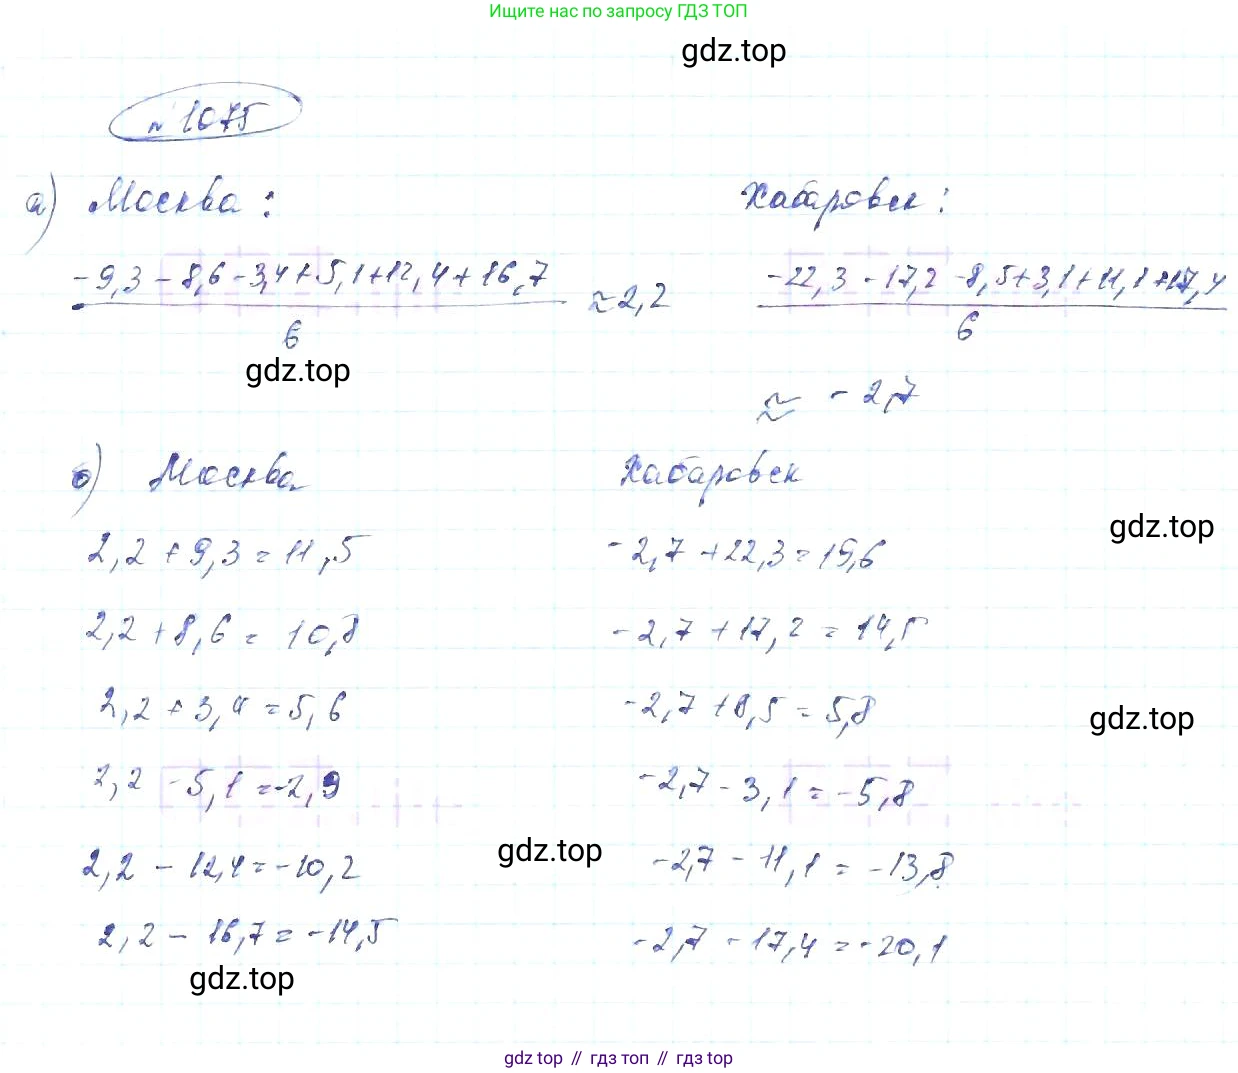 Ищите нас по запросу ГДЗ ТОП
gdz.top
№ 1075
а) Москва: Хабаровск:
-9,3 - 8,6 - 3,4 + 5,1 + 12,4 + 16,7 / 6 ≈ 2,2
-22,3 - 17,2 - 8,5 + 3,1 + 11,1 + 17,4 / 6
gdz.top
≈ -2,7
б) Москва Хабаровск
gdz.top
2,2 + 9,3 = 11,5 -2,7 + 22,3 = 19,6
2,2 + 8,6 = 10,8 -2,7 + 17,2 = 14,5
2,2 + 3,4 = 5,6 -2,7 + 8,5 = 5,8
gdz.top
2,2 - 5,1 = -2,9 -2,7 - 3,1 = -5,8
gdz.top
2,2 - 12,4 = -10,2 -2,7 - 11,1 = -13,8
2,2 - 16,7 = -14,5 -2,7 - 17,4 = -20,1
gdz.top
gdz top // гдз топ // gdz top